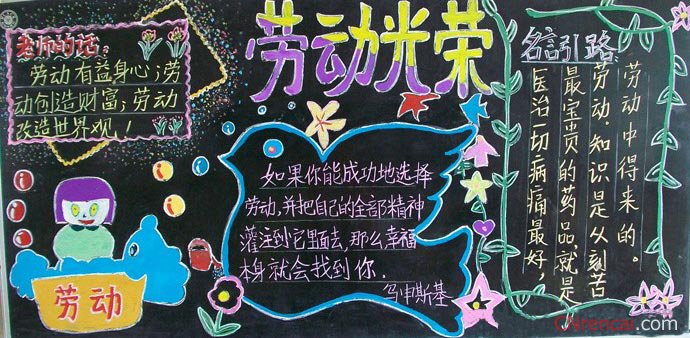 劳动光荣
老师的话：
劳动有益身心；劳
动创造财富；劳动
改造世界观！
劳动
如果你能成功地选择
劳动，并把自己的全部精神
灌注到它里面去，那么幸福
本身就会找到你．
乌申斯基
名言引路
医治一切病痛最好，
最宝贵的药品，就是
劳动．知识是从刻苦
劳动中得来的。
CNrencai.com